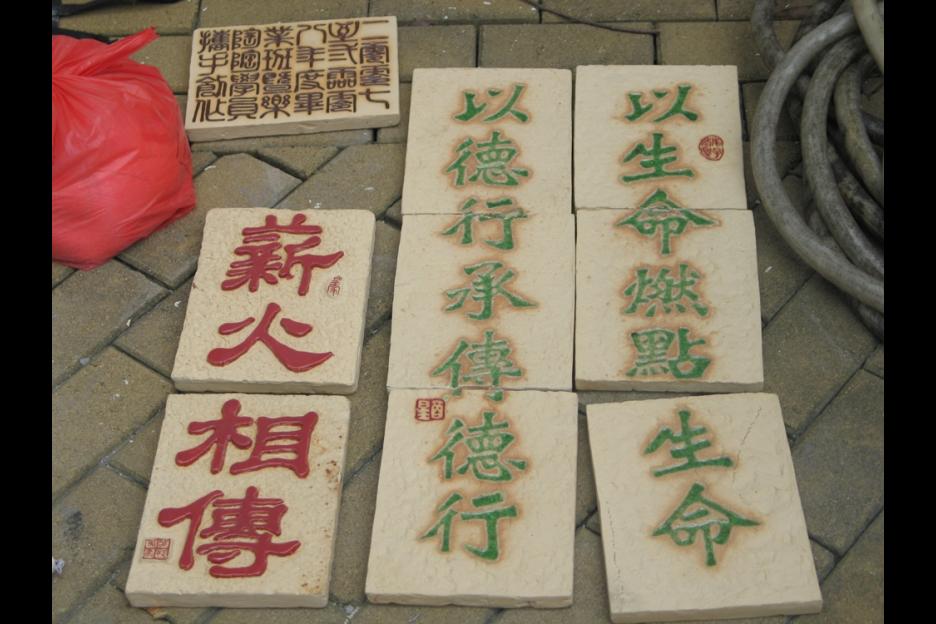 二零零七
至二零零
八年度畢
業班暨樂
陶陶學員
攜手創作
以生命燃點生命
以德行承傳德行
薪火相傳